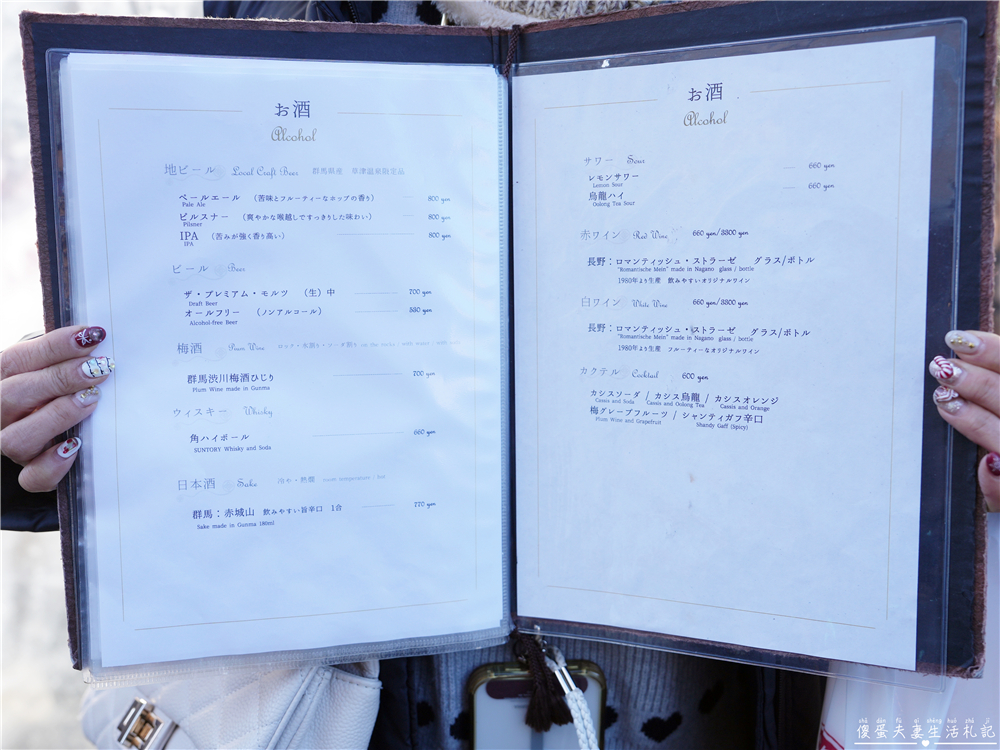 お酒
Alcohol
地ビール Local Craft Beer 群馬県産 草津温泉限定品
ペールエール (苦味とフルーティーなホップの香り) 800 yen
Pale Ale
ピルスナー (爽やかな喉越しですっきりした味わい) 800 yen
Pilsner
IPA (苦みが強く香り高い) 800 yen
IPA
ビール Beer
ザ・プレミアム・モルツ (生)中 700 yen
Draft Beer
オールフリー (ノンアルコール) 550 yen
Alcohol-free Beer
梅酒 Plum Wine ロック・水割り・ソーダ割り on the rocks / with water / with soda
群馬渋川梅酒ひじり 700 yen
Plum Wine made in Gunma
ウィスキー Whisky
角ハイボール 660 yen
SUNTORY Whisky and Soda
日本酒 Sake 冷や・熱燗 room temperature / hot
群馬:赤城山 飲みやすい旨辛口 1合 770 yen
Sake made in Gunma 180ml
お酒
Alcohol
サワー Sour
レモンサワー 660 yen
Lemon Sour
烏龍ハイ 660 yen
Oolong Tea Sour
赤ワイン Red Wine 660 yen/3300 yen
長野:ロマンティッシュ・ストラーゼ グラス/ボトル
"Romantische Mein" made in Nagano glass / bottle
1980年より生産 飲みやすいオリジナルワイン
白ワイン White Wine 660 yen/3300 yen
長野:ロマンティッシュ・ストラーゼ グラス/ボトル
"Romantische Mein" made in Nagano glass / bottle
1980年より生産 フルーティーなオリジナルワイン
カクテル Cocktail 600 yen
カシスソーダ / カシス烏龍 / カシスオレンジ
Cassis and Soda Cassis and Oolong Tea Cassis and Orange
梅グレープフルーツ / シャンティガフ辛口
Plum Wine and Grapefruit Shandy Gaff (Spicy)
shǎ dàn fū qī shēng huó zhá jì
傻蛋夫妻生活札記